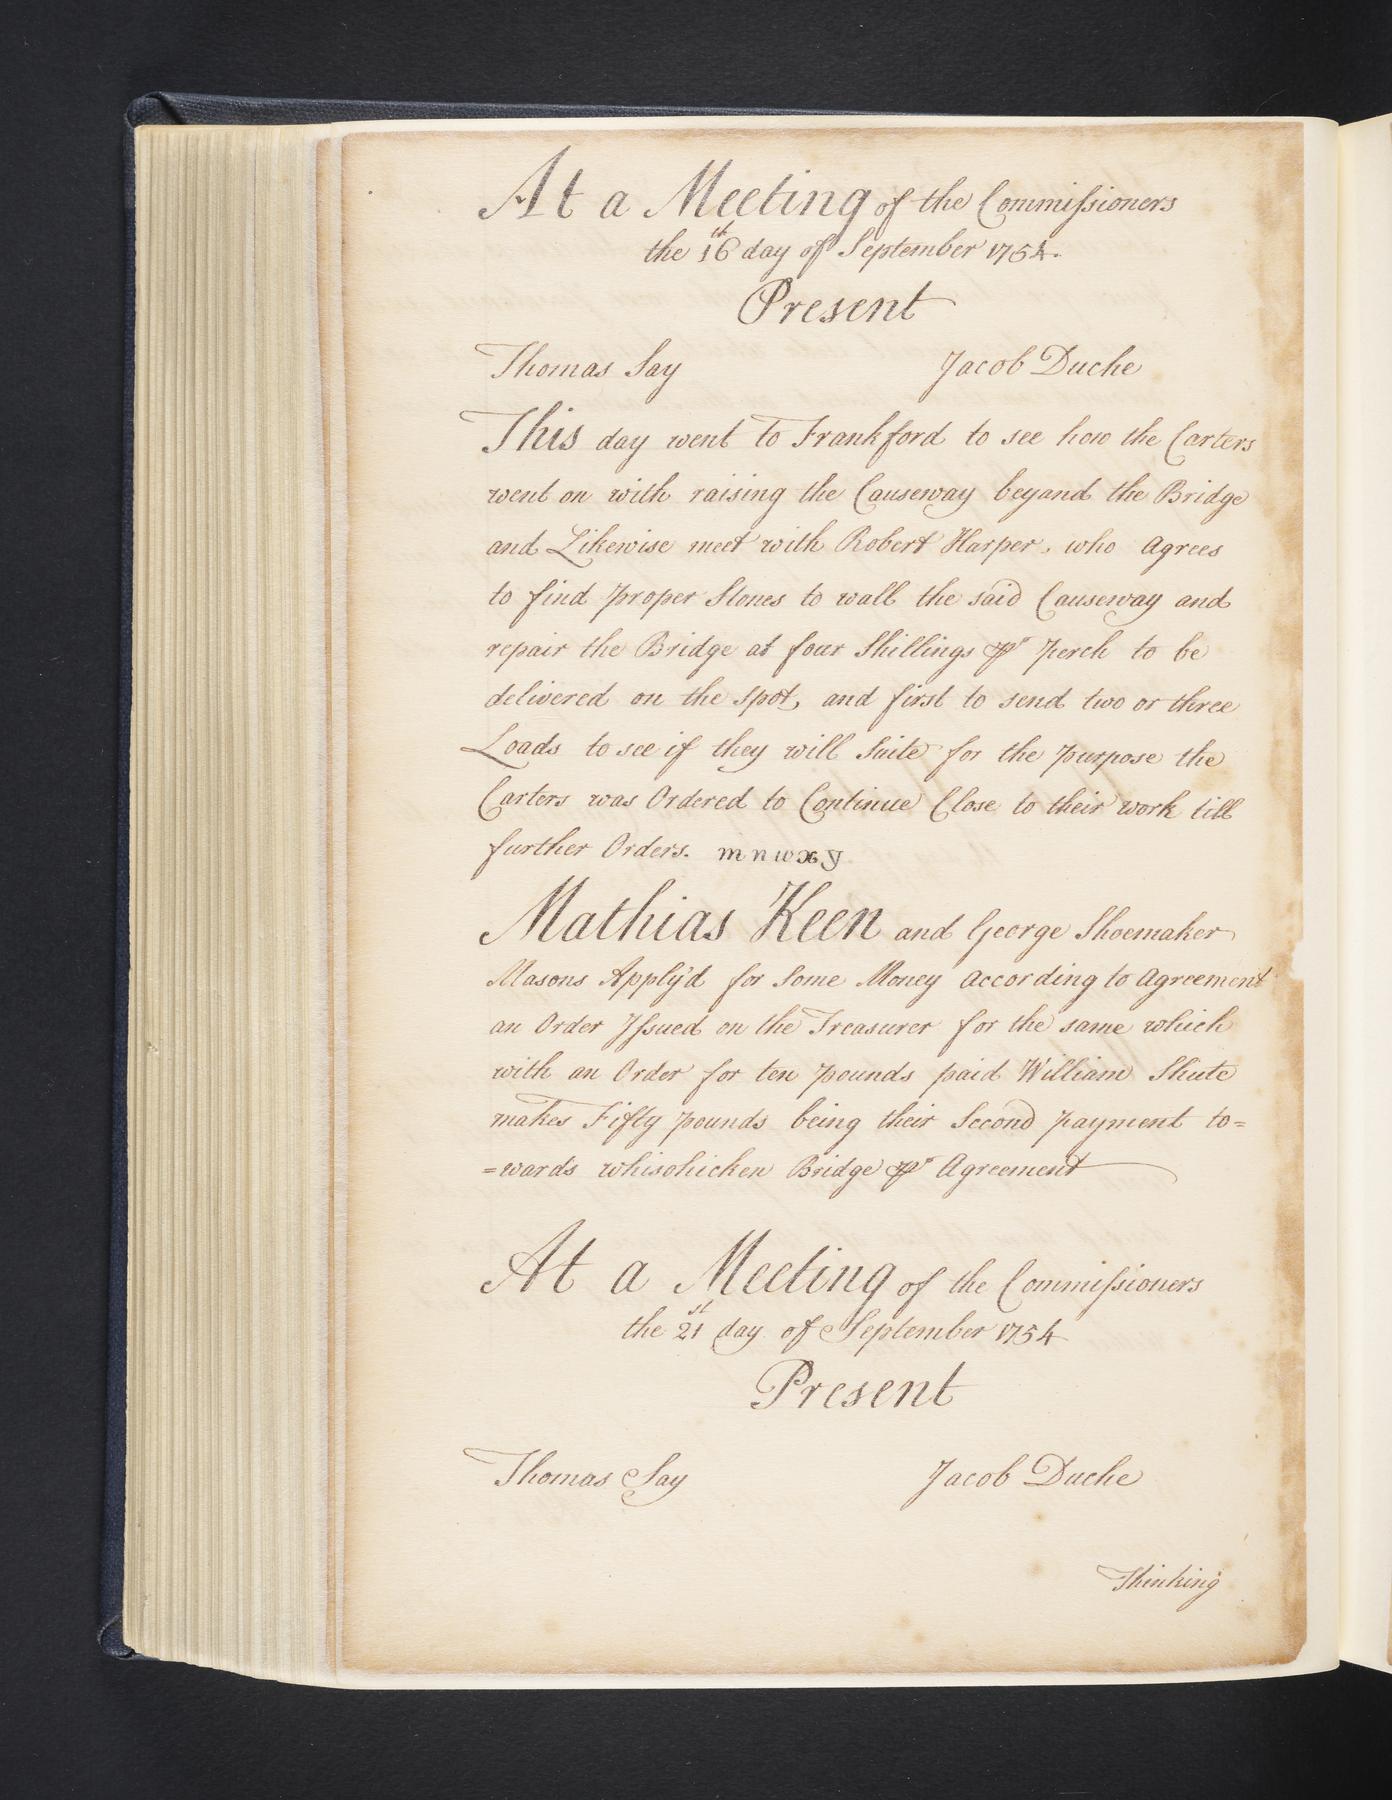 At a Meeting of the Commissioners
the 16th day of September 1754.
Present
Thomas Say Jacob Duche
This day went to Frankford to see how the Carters
went on with raising the Causeway beyand the Bridge
and Likewise meet with Robert Harper, who Agrees
to find proper Stones to wall the said Causeway and
repair the Bridge at four Shillings pr perch to be
delivered on the spot, and first to send two or three
Loads to see if they will Suite for the purpose the
Carters was Ordered to Continue Close to their work till
further Orders. m n w x y
Mathias Keen and George Shoemaker
Masons Apply'd for Some Money according to Agreement
an Order Issued on the Treasurer for the same which
with an Order for ten pounds paid William Shute
makes Fifty pounds being their Second payment to=
=wards whisohicken Bridge pr Agreement
At a Meeting of the Commissioners
the 21st day of September 1754
Present
Thomas Say Jacob Duche
Thinking